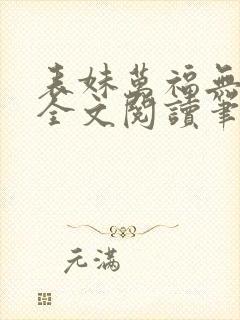 表妹萬福無
全文閱讀筆
元滿